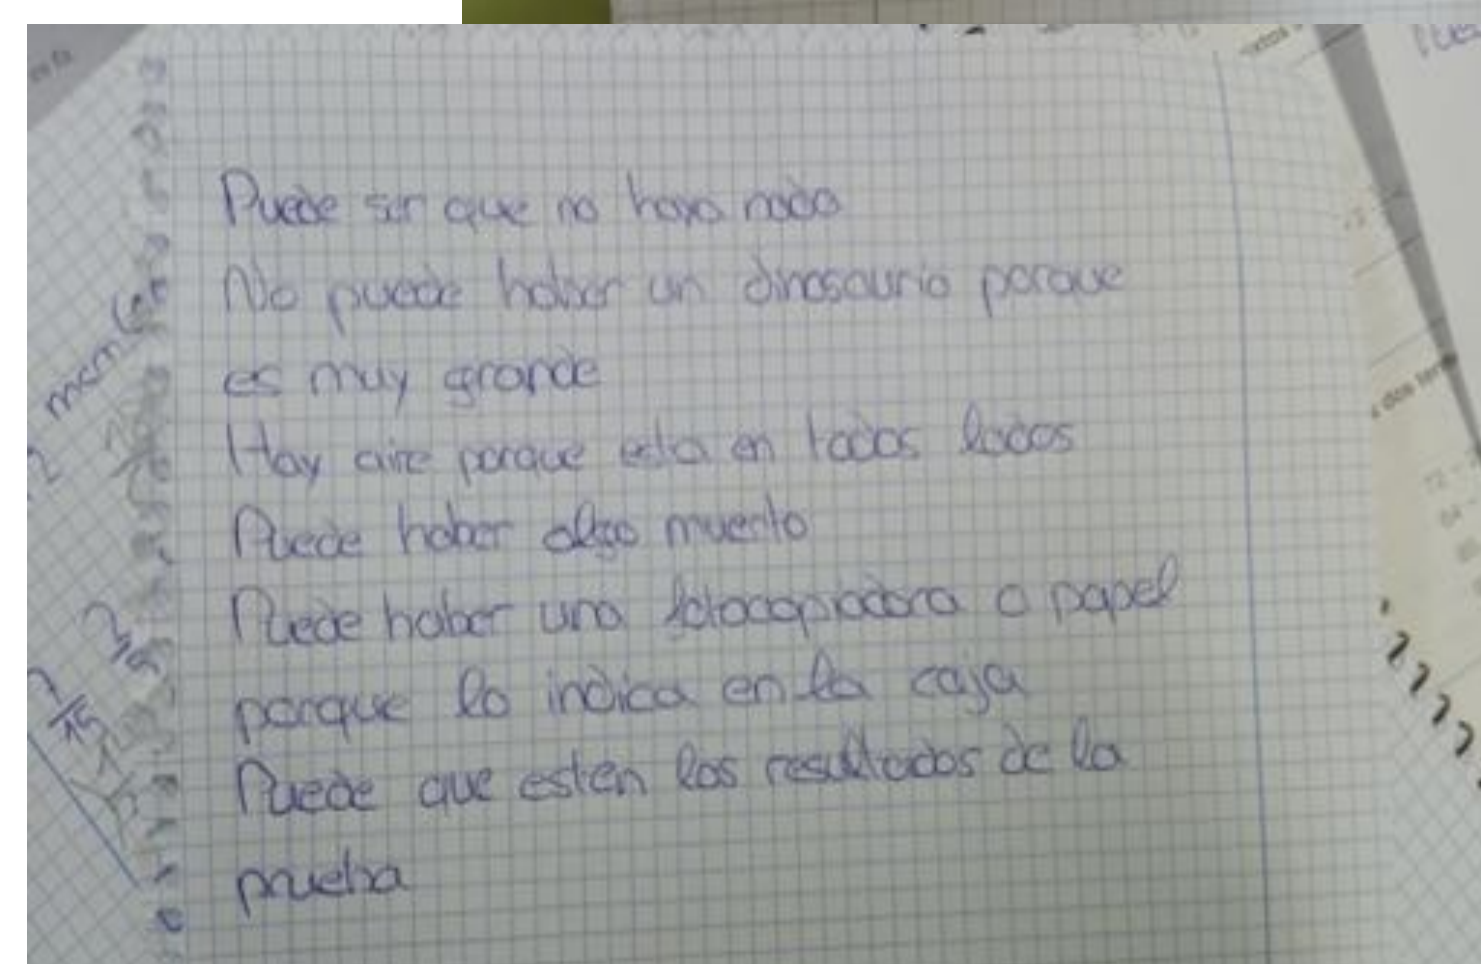 Puede ser que no haya nada
No puede haber un dinosaurio porque
es muy grande
Hay aire porque esta en todos lados
Puede haber algo muerto
Puede haber una fotocopiadora o papel
porque lo indica en la caja
Puede que estén los resultados de la
prueba
mcm
7/15